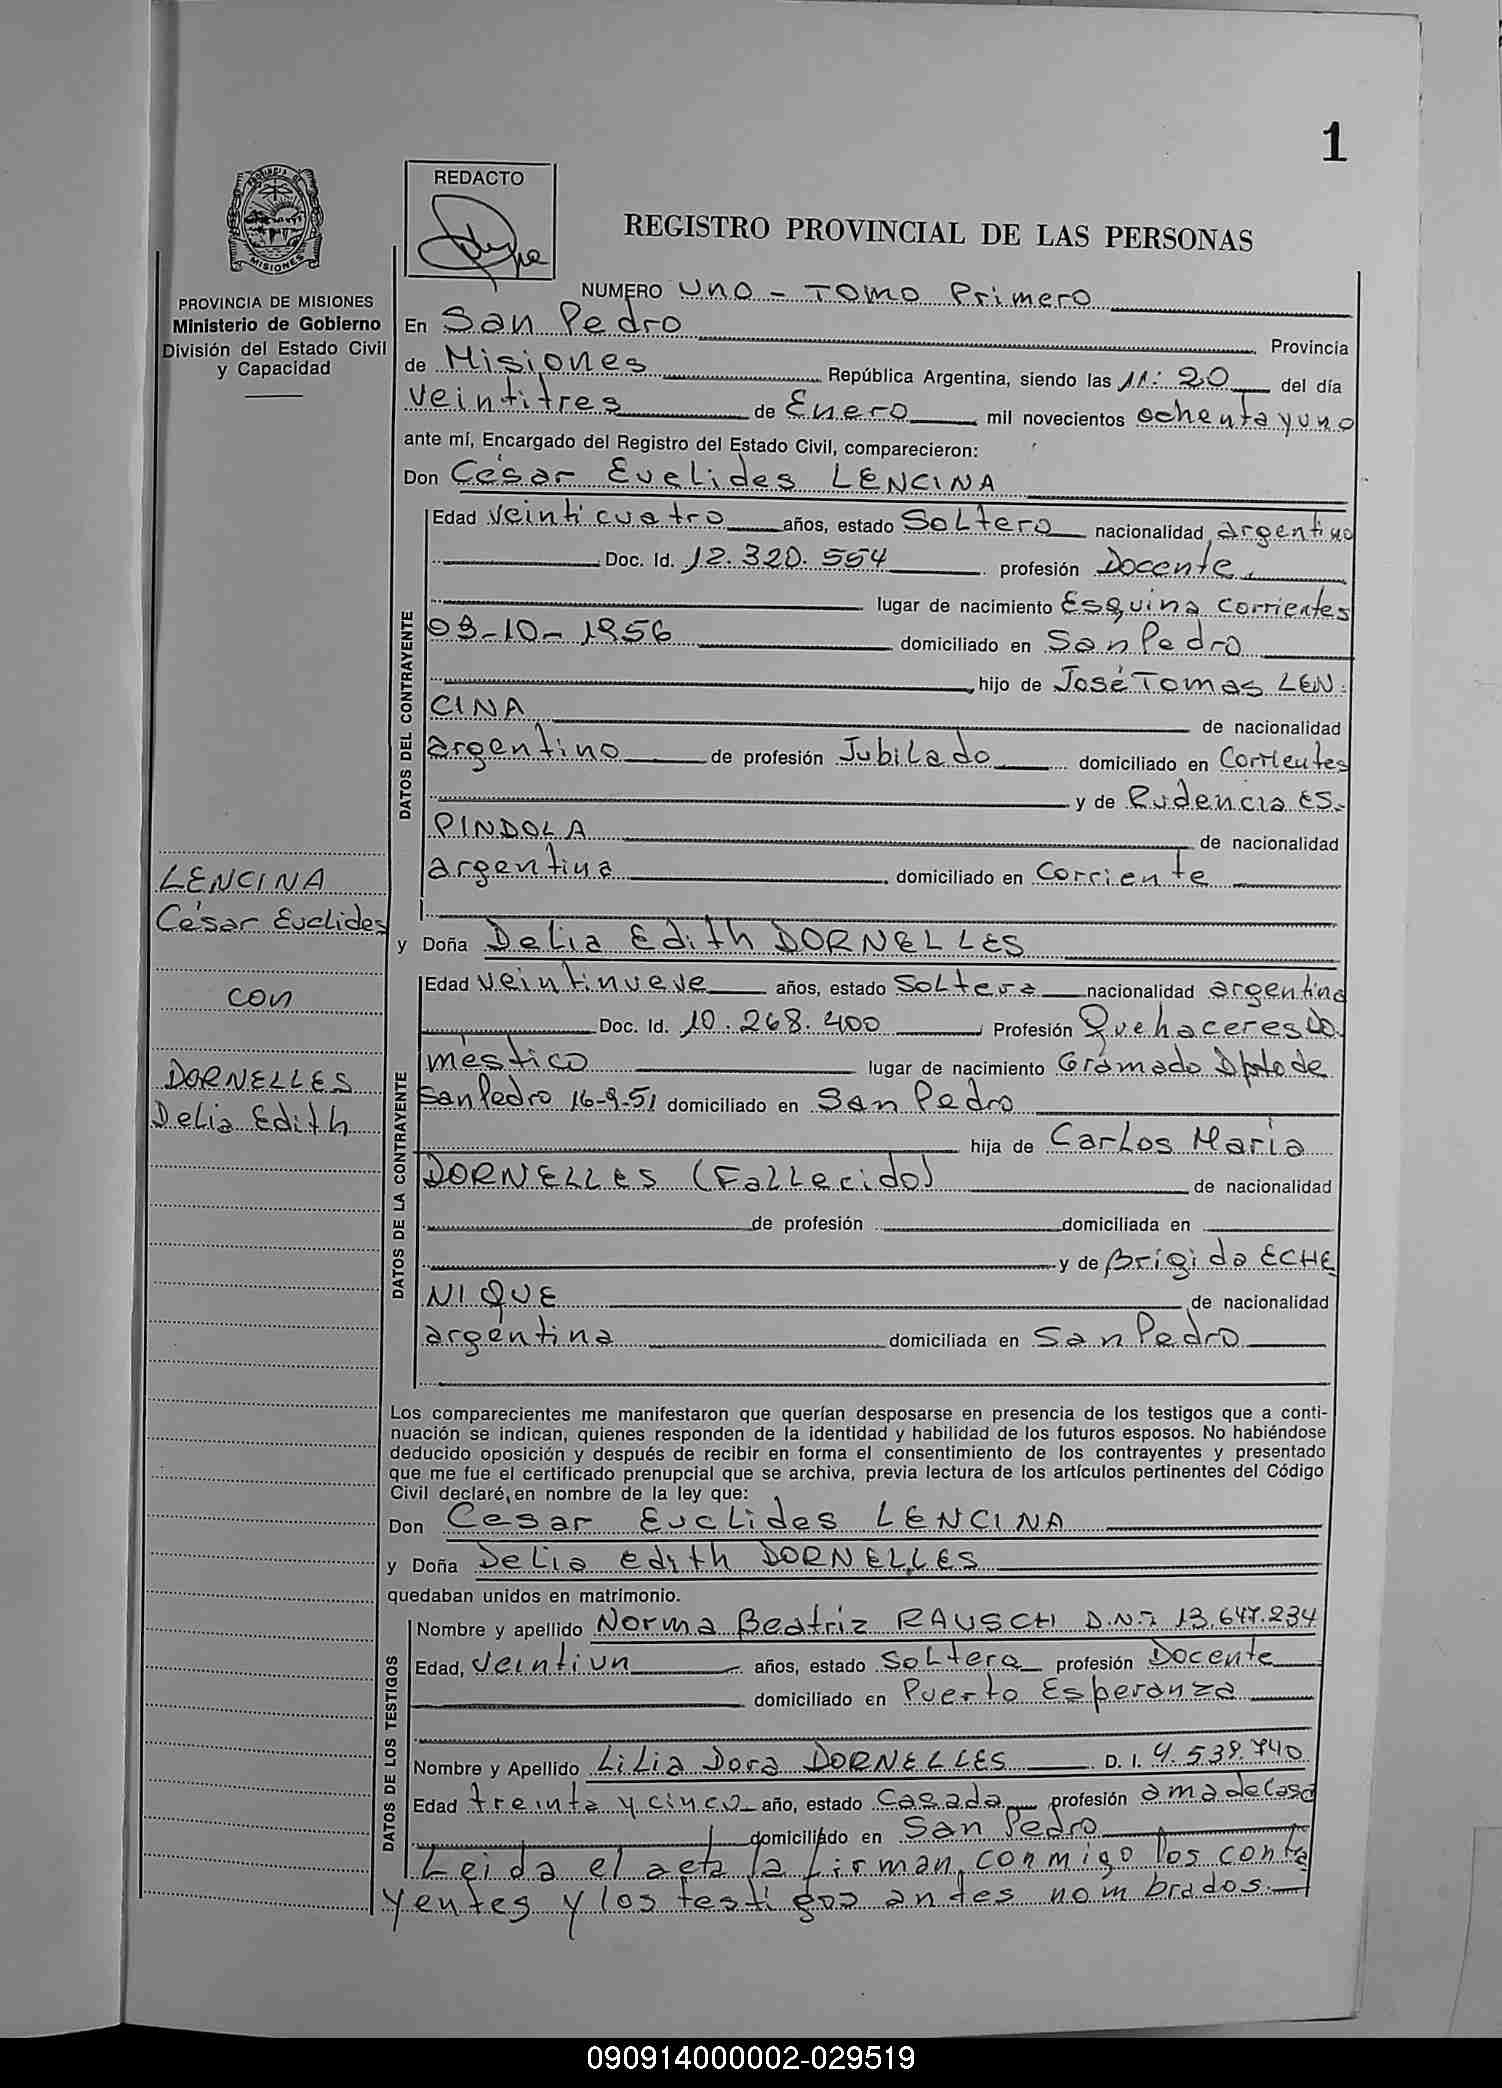 1
REDACTO
REGISTRO PROVINCIAL DE LAS PERSONAS
PROVINCIA DE MISIONES
Ministerio de Gobierno
División del Estado Civil
y Capacidad
NUMERO uno - Tomo Primero
En San Pedro Provincia
de Misiones República Argentina, siendo las 11:20 del día
veintitres de Enero mil novecientos ochenta y uno
ante mí, Encargado del Registro del Estado Civil, comparecieron:
Don César Euclides LENCINA
DATOS DEL CONTRAYENTE
Edad veinticuatro años, estado Soltero nacionalidad argentino
Doc. Id. 12.320.554 profesión Docente
lugar de nacimiento Esquina Corrientes
09-10-1956 domiciliado en San Pedro
hijo de José Tomas LEN-
CINA de nacionalidad
argentino de profesión Jubilado domiciliado en Corrientes
y de Rudencia ES-
PINDOLA de nacionalidad
argentina domiciliado en Corriente
LENCINA
César Euclides
con
DORNELLES
Delia Edith
y Doña Delia Edith DORNELLES
DATOS DE LA CONTRAYENTE
Edad veintinueve años, estado Soltera nacionalidad argentina
Doc. Id. 10.268.400 Profesión Quehaceres Do.
méstico lugar de nacimiento Gramado Dpto de
San Pedro 16-9-51 domiciliado en San Pedro
hija de Carlos María
DORNELLES (Fallecido) de nacionalidad
de profesión domiciliada en
y de Brígida ECHE
NIQUE de nacionalidad
argentina domiciliada en San Pedro
Los comparecientes me manifestaron que querían desposarse en presencia de los testigos que a conti-
nuación se indican, quienes responden de la identidad y habilidad de los futuros esposos. No habiéndose
deducido oposición y después de recibir en forma el consentimiento de los contrayentes y presentado
que me fue el certificado prenupcial que se archiva, previa lectura de los artículos pertinentes del Código
Civil declaré, en nombre de la ley que:
Don Cesar Euclides LENCINA
y Doña Delia edith DORNELLES
quedaban unidos en matrimonio.
DATOS DE LOS TESTIGOS
Nombre y apellido Norma Beatriz RAUSCH D.N.I. 13.647.234
Edad, veintiun años, estado Soltera profesión Docente
domiciliado en Puerto Esperanza
Nombre y Apellido Lilia Dora DORNELLES D. I. 4.539.740
Edad treinta y cinco año, estado Casada profesión ama de Casa
domiciliado en San Pedro
Leida el acta la firman conmigo los contra
yentes y los testigos antes nombrados.
090914000002-029519